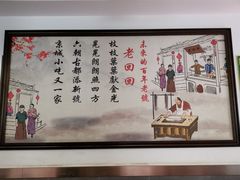 未来的百年老號
老回回
枝枝葉葉献金光
晃晃朗朗照四方
六朝古都添新號
京城小吃又一家